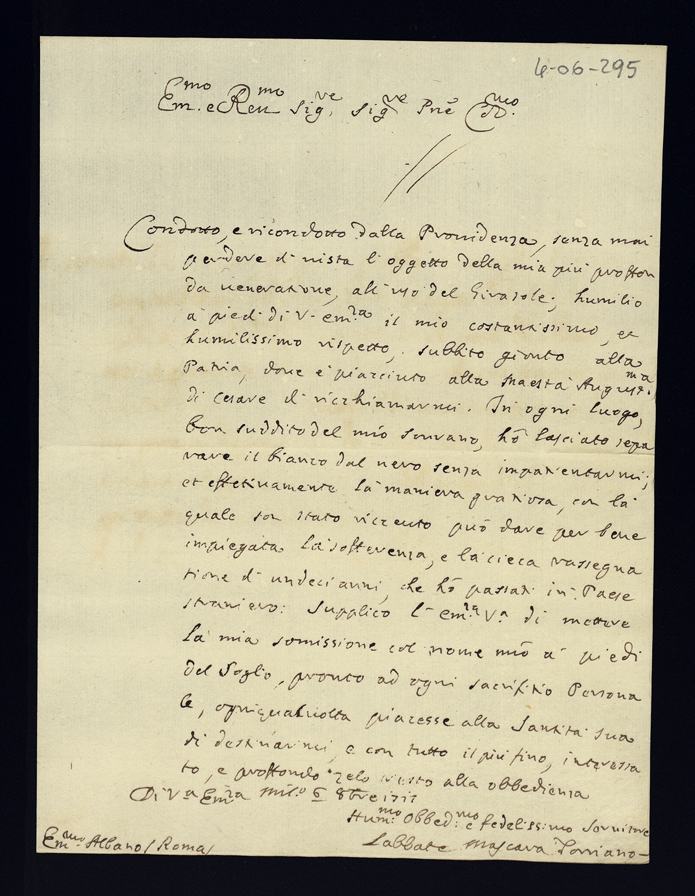 4-06-295
Em.mo e Reu.mo Sig.re, Sig.re Pne C.mo
Condotto, e ricondotto dalla Prouidenza, senza mai
perdere di uista l'oggetto della mia più profon
da ueneratione, all'uso del Girasole; humilio
a piedi di V. em.za il mio costantissimo, et
humilissimo rispetto, subbito gionto alla
Patria, doue è piacciuto alla Maestà August.ma
di Cesare di ricchiamarmi. In ogni luogo,
bon suddito del mio sourano, hò lasciato sepa
rare il bianco dal nero senza impatientarmi;
et effettiuamente la maniera gratiosa, con la
quale son stato riceuto può dare per bene
impiegata la sofferenza, e la cieca rassegna
tione di undeci anni, che hò passati in Paese
straniero: Supplico l'em.za V.a di mettere
la mia somissione col nome mio a' piedi
del Soglio, pronto ad ogni sacrifitio Persona
le, ogniqualuolta piacesse alla Santità sua
di destinarmi, e con tutto il più fino, interessa
to, e profondo zelo resto alla obbedienza
Di V.a Em.za Mil.o 6 8bre
Hum.mo Obbed.mo e fedelissimo Seruitore
Labbate Mascara Torriano
Em.mo Albano (Roma)